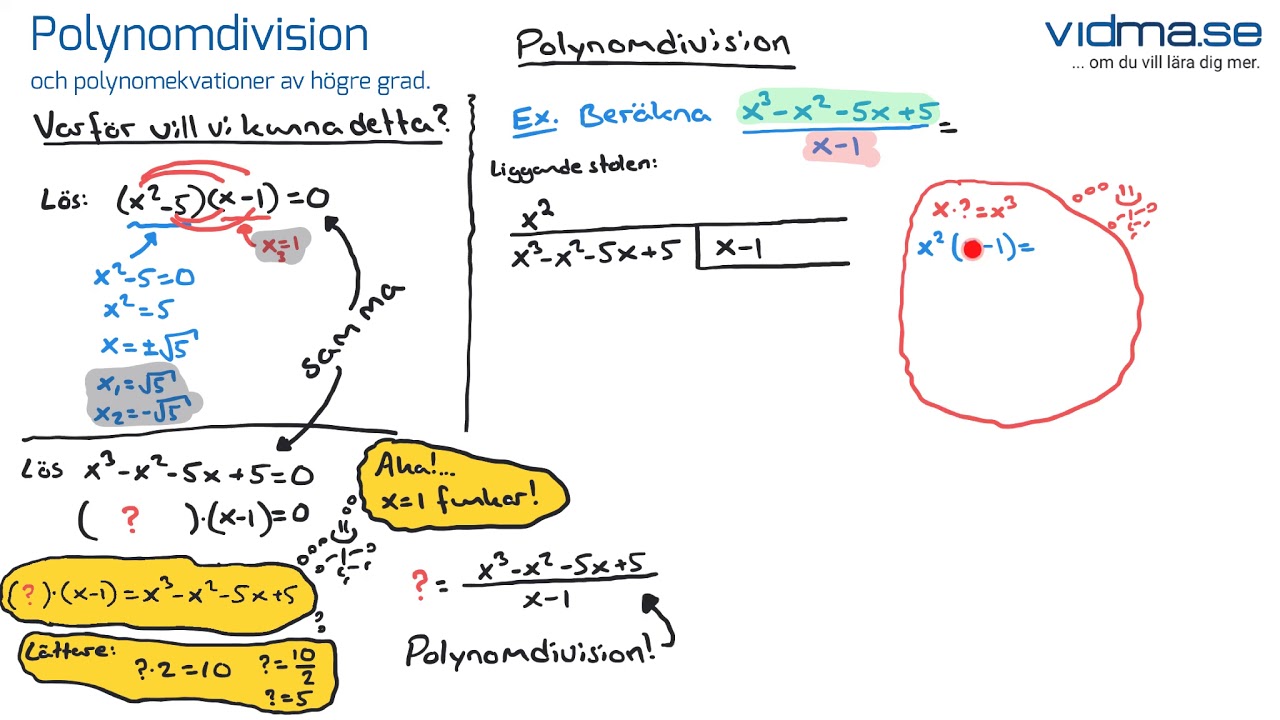 Polynomdivision
och polynomekvationer av högre grad.
Varför vill vi kunna detta?
Lös: (x²-5)(x-1)=0
x=1
x²-5=0
x²=5
x=±√5
x₁=√5
x₂=-√5
samma
Lös x³-x²-5x+5=0
( ? )·(x-1)=0
Aha!...
x=1 funkar!
(?)·(x-1)=x³-x²-5x+5
Lättare:
?·2=10 ?=10/2
?=5
?= x³-x²-5x+5
x-1
Polynomdivision!
Polynomdivision
vidma.se
... om du vill lära dig mer.
Ex. Beräkna x³-x²-5x+5 =
x-1
Liggande stolen:
x²
x³-x²-5x+5 x-1
x·?=x³
x²( -1)=